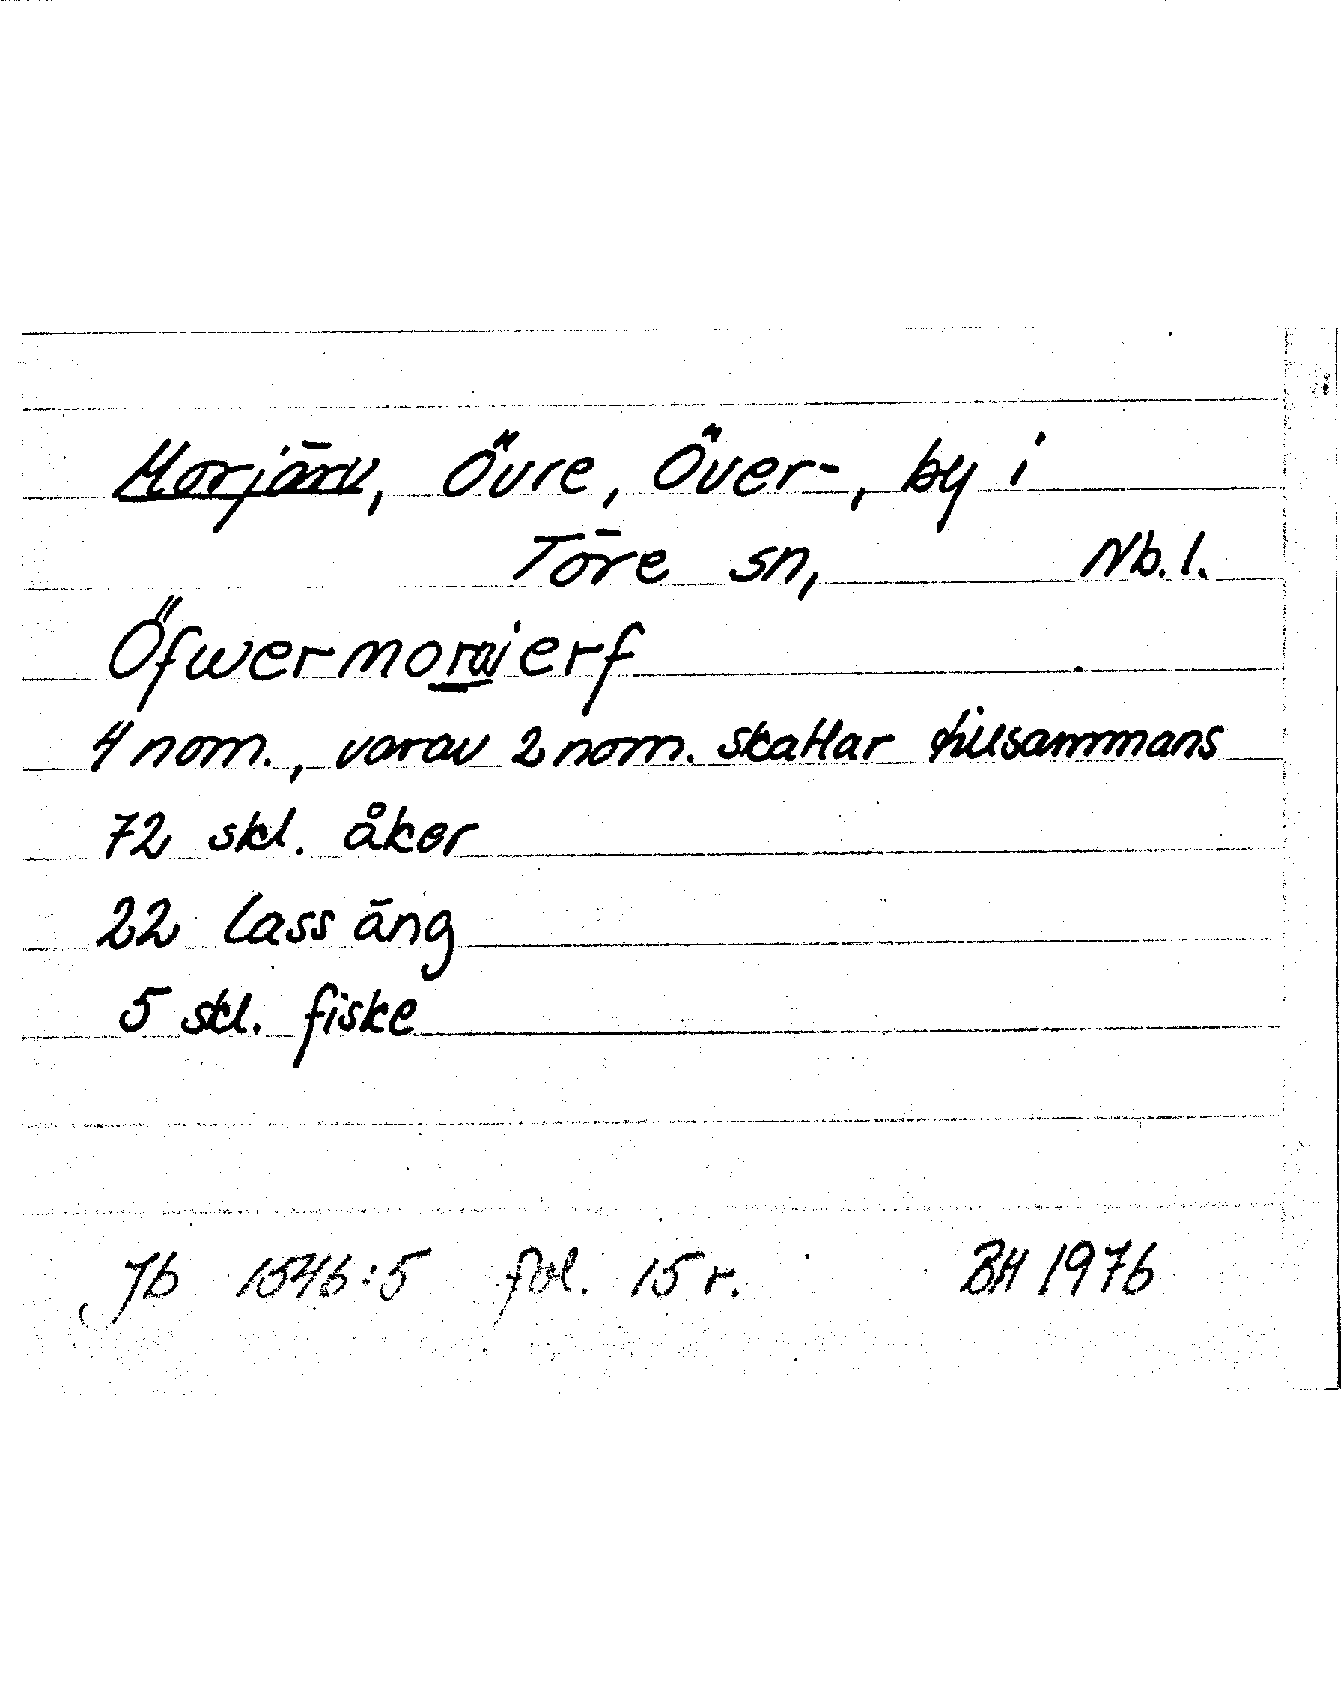 Morjärv, Övre, Över-, by i
Töre sn, Nb.l.
Öfwermorajerf
4 nom., varav 2 nom. skattar tillsammans
72 skl. åker
22 lass äng
5 skl. fiske
Jb 1546:5 fol. 15 r. BH 1976